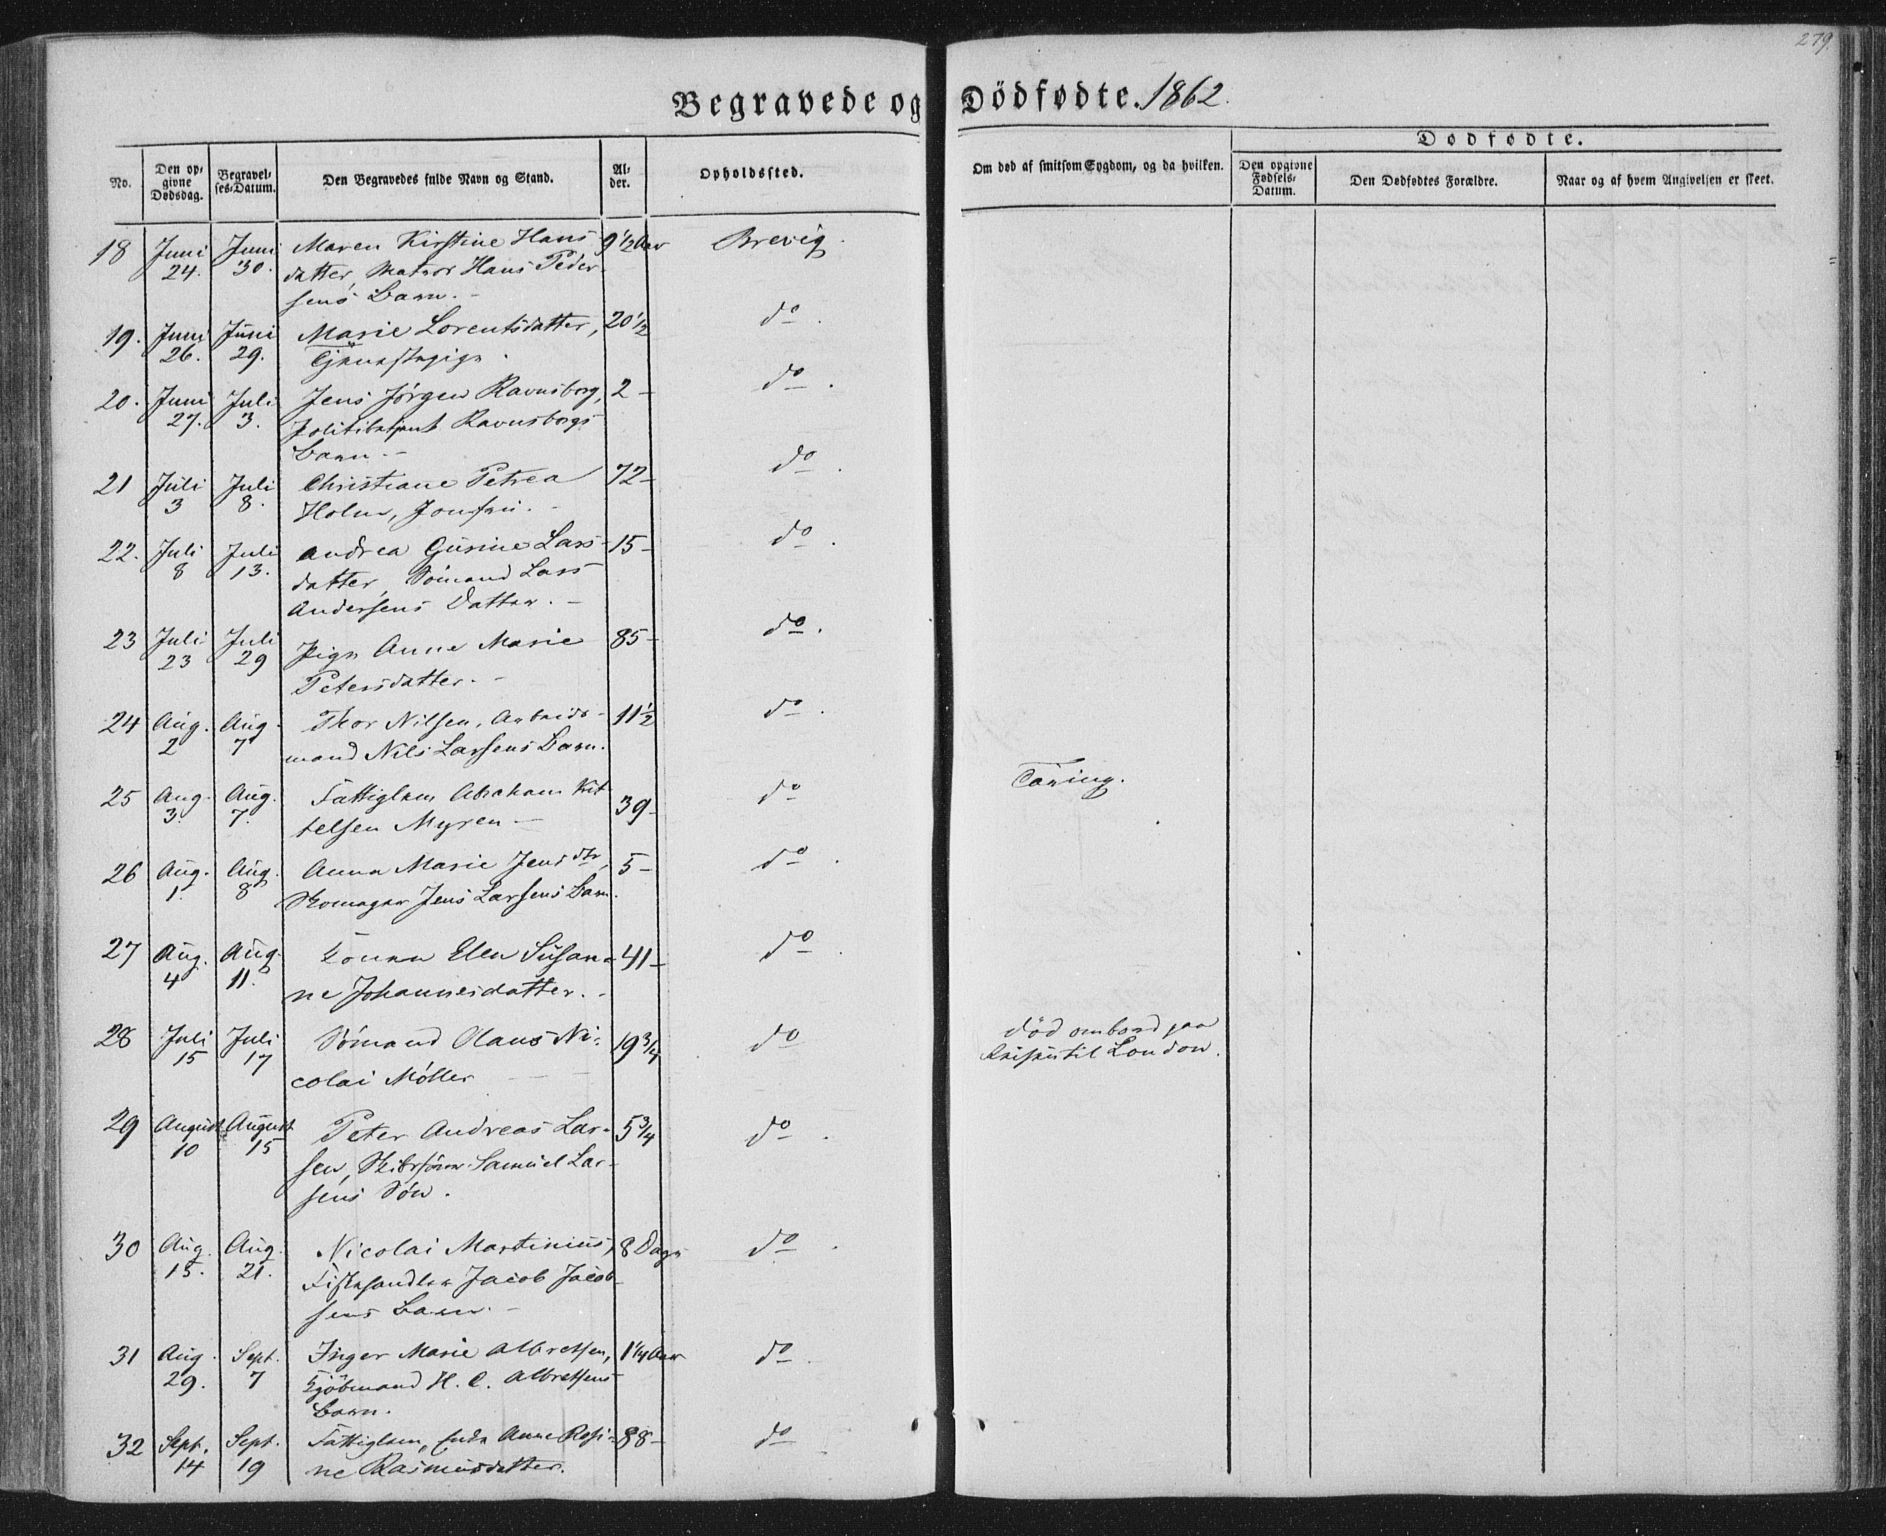 279.
Begravede og Dödfødte. 1862.
No.
Den opgivne Dødsdag.
Begravelses-Datum.
Den Begravedes fulde Navn og Stand.
Alder.
Opholdssted.
Om død af smitsom Sygdom, og da hvilken.
Dødfødte.
Den opgivne Fødsels-Datum.
Den Dødfødtes Forældre.
Naar og af hvem Angivelsen er skeet.
18 Juni Juni Maren Kirstine Hans- 9 1/2 Aar Brevig.
24. 30. datter, Matros Hans Peder-
sens Barn.-
19. Juni Juni Marie Lorentsdatter, 20 1/2 do.
26. 29. Tjenestepige.
20. Juni Juli Jens Jørgen Ravnsborg, 2 - do.
27. 3. Politibetjent Ravnsborgs
Barn.-
21 Juli Juli Christiane Petrea 72- do.
3 8. Holm, Jomfru.-
22. Juli Juli Andrea Gurine Lars- 15- do.
8 13. datter, Sømand Lars
Andersens Datter.-
23 Juli Juli Pige Anne Marie 85- do.
23 29 Petersdatter.-
24 Aug. Aug. Thor Nilsen, Arbeids- 11 1/2 do.
2 7 mand Nils Larsens Barn.
25 Aug. Aug. Fattiglem Abraham Kit- 39- do Tæring.
3. 7. telsen Myren-
26 Aug. Aug. Anna Marie Jensdtr, 5- do.
1. 8 Skomager Jens Larsens Barn.
27 Aug. Aug. Konen Elen Susan- 41- do.
4 11. ne Johannesdatter.-
28 Juli Juli Sømand Olaus Ni- 19 3/4 do død ombord paa
15 17 colai Møller Reisen til London.
29 August August Peter Andreas Lar- 5 3/4 do.
10 15 sen, Skibsfører Samuel Lar-
sens Søn.
30 Aug. Aug. Nicolai Martinius, 8 Dage do.
15. 21. Fiskehandler Jacob Jacob-
sens Barn.-
31 Aug. Sept. Inger Marie Albretsen, 1 1/4 Aar do.
29. 7 Kjøbmand H. C. Albretsens
Barn.
32 Sept. Sept. Fattiglem, Enke Anne Rosi- 88- do
14 19 ne Rasmusdatter.